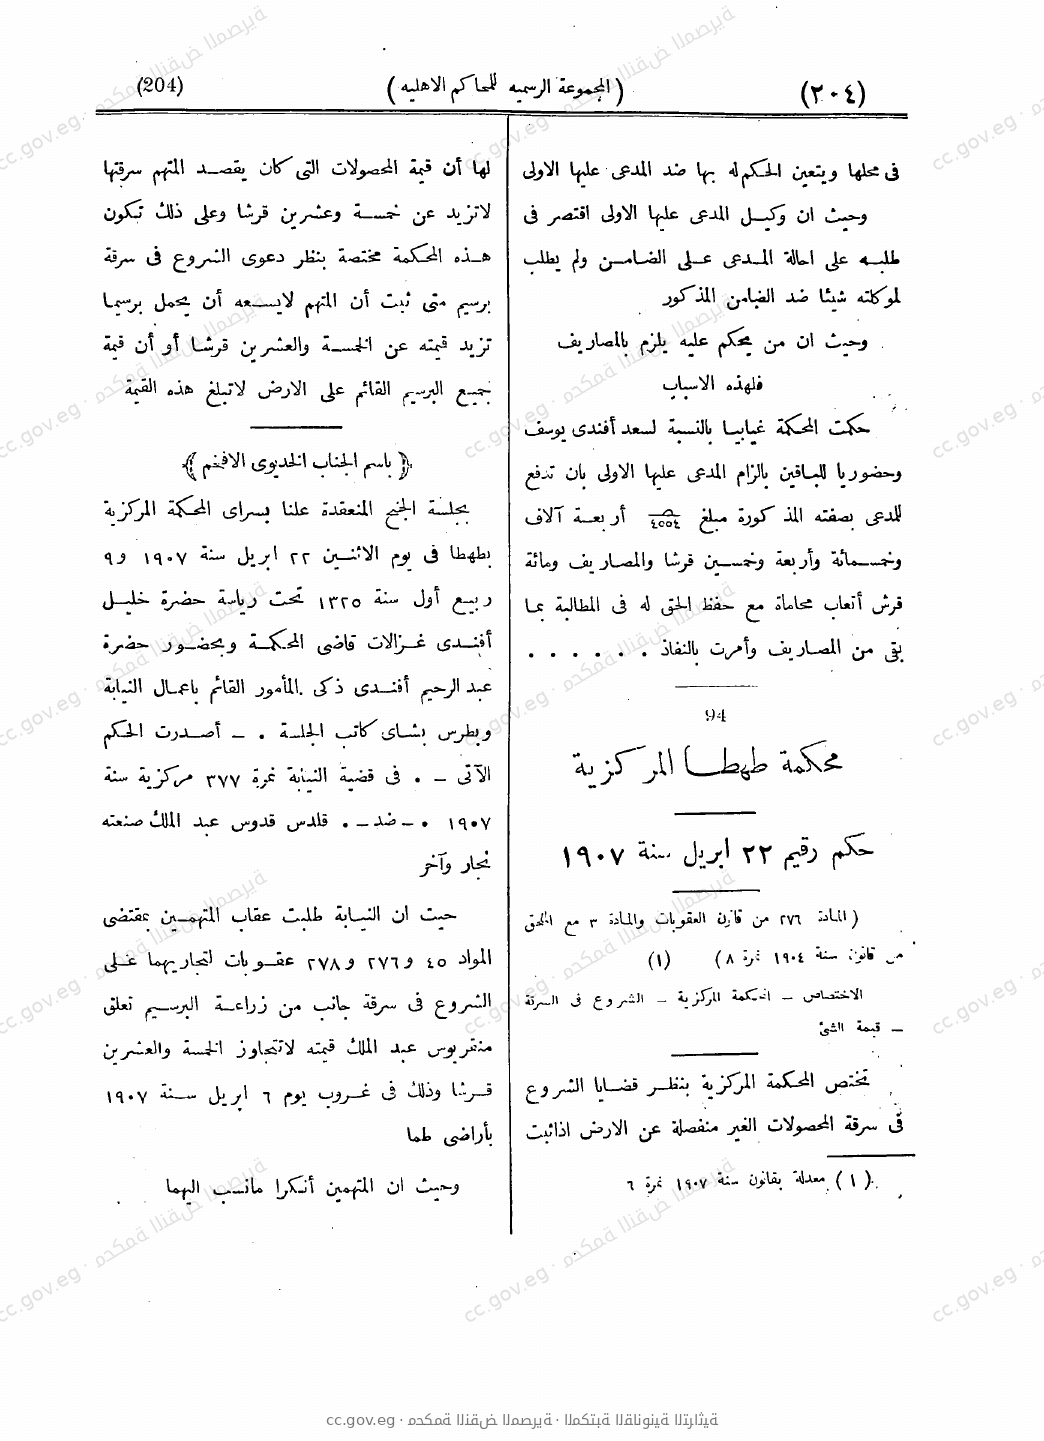 (٢٠٤)
(المجموعة الرسميه للمحاكم الاهليه)
(204)
فى محلها ويتعين الحكم له بها ضد المدعى عليها الاولى
وحيث ان وكيل المدعى عليها الاولى اقتصر فى
طلبه على احالة المدعى على الضامن ولم يطلب
لموكلته شيئا ضد الضامن المذكور
وحيث ان من يحكم عليه يلزم بالمصاريف
فلهذه الاسباب
حكمت المحكمة غيابيا بالنسبة لسعد أفندى يوسف
وحضوريا للباقين بالزام المدعى عليها الاولى بان تدفع
للمدعى بصفته المذكورة مبلغ ٤٥٥٤ أربعة آلاف
وخمسمائة وأربعة وخمسين قرشا والمصاريف ومائة
قرش أتعاب محاماة مع حفظ الحق له فى المطالبة بما
بقى من المصاريف وأمرت بالنفاذ . . . . . .
94
محكمة طهطا المركزية
حكم رقيم ٢٢ ابريل سنة ١٩٠٧
(المادة ٢٧٦ من قانون العقوبات والمادة ٣ مع الملحق
من قانون سنة ١٩٠٤ نمرة ٨) (١)
الاختصاص – المحكمة المركزية – الشروع فى السرقة
– قيمة الشئ
تختص المحكمة المركزية بنظر قضايا الشروع
فى سرقة المحصولات الغير منفصلة عن الارض اذا ثبت
(١) معدلة بقانون سنة ١٩٠٧ نمرة ٦
لها أن قيمة المحصولات التى كان يقصد المتهم سرقتها
لا تزيد عن خمسة وعشرين قرشا وعلى ذلك تكون
هذه المحكمة مختصة بنظر دعوى الشروع فى سرقة
برسيم متى ثبت أن المتهم لا يسعه أن يحمل برسيما
تزيد قيمته عن الخمسة والعشرين قرشا أو أن قيمة
جميع البرسيم القائم على الارض لا تبلغ هذه القيمة
﴿ باسم الجناب الخديوى الافخم ﴾
بجلسة الجنح المنعقدة علنا بسراى المحكمة المركزية
بطهطا فى يوم الاثنين ٢٢ ابريل سنة ١٩٠٧ و٩
ربيع أول سنة ١٣٢٥ تحت رياسة حضرة خليل
أفندى غزالات قاضى المحكمة وبحضور حضرة
عبد الرحيم أفندى ذكى المأمور القائم باعمال النيابة
وبطرس بشاى كاتب الجلسة . – أصدرت الحكم
الآتى – . فى قضية النيابة نمرة ٣٧٧ مركزية سنة
١٩٠٧ . – ضد – . قلدس قدوس عبد الملك صنعته
نجار وآخر
حيث ان النيابة طلبت عقاب المتهمين بمقتضى
المواد ٤٥ و٢٧٦ و٢٧٨ عقوبات لتجاريهما على
الشروع فى سرقة جانب من زراعة البرسيم تعلق
منقريوس عبد الملك قيمته لا تتجاوز الخمسة والعشرين
قرشا وذلك فى غروب يوم ٦ ابريل سنة ١٩٠٧
بأراضى طما
وحيث ان المتهمين أنكرا ما نسب اليهما
cc.gov.eg · محكمة النقض المصرية · المكتبة القانونية التراثية